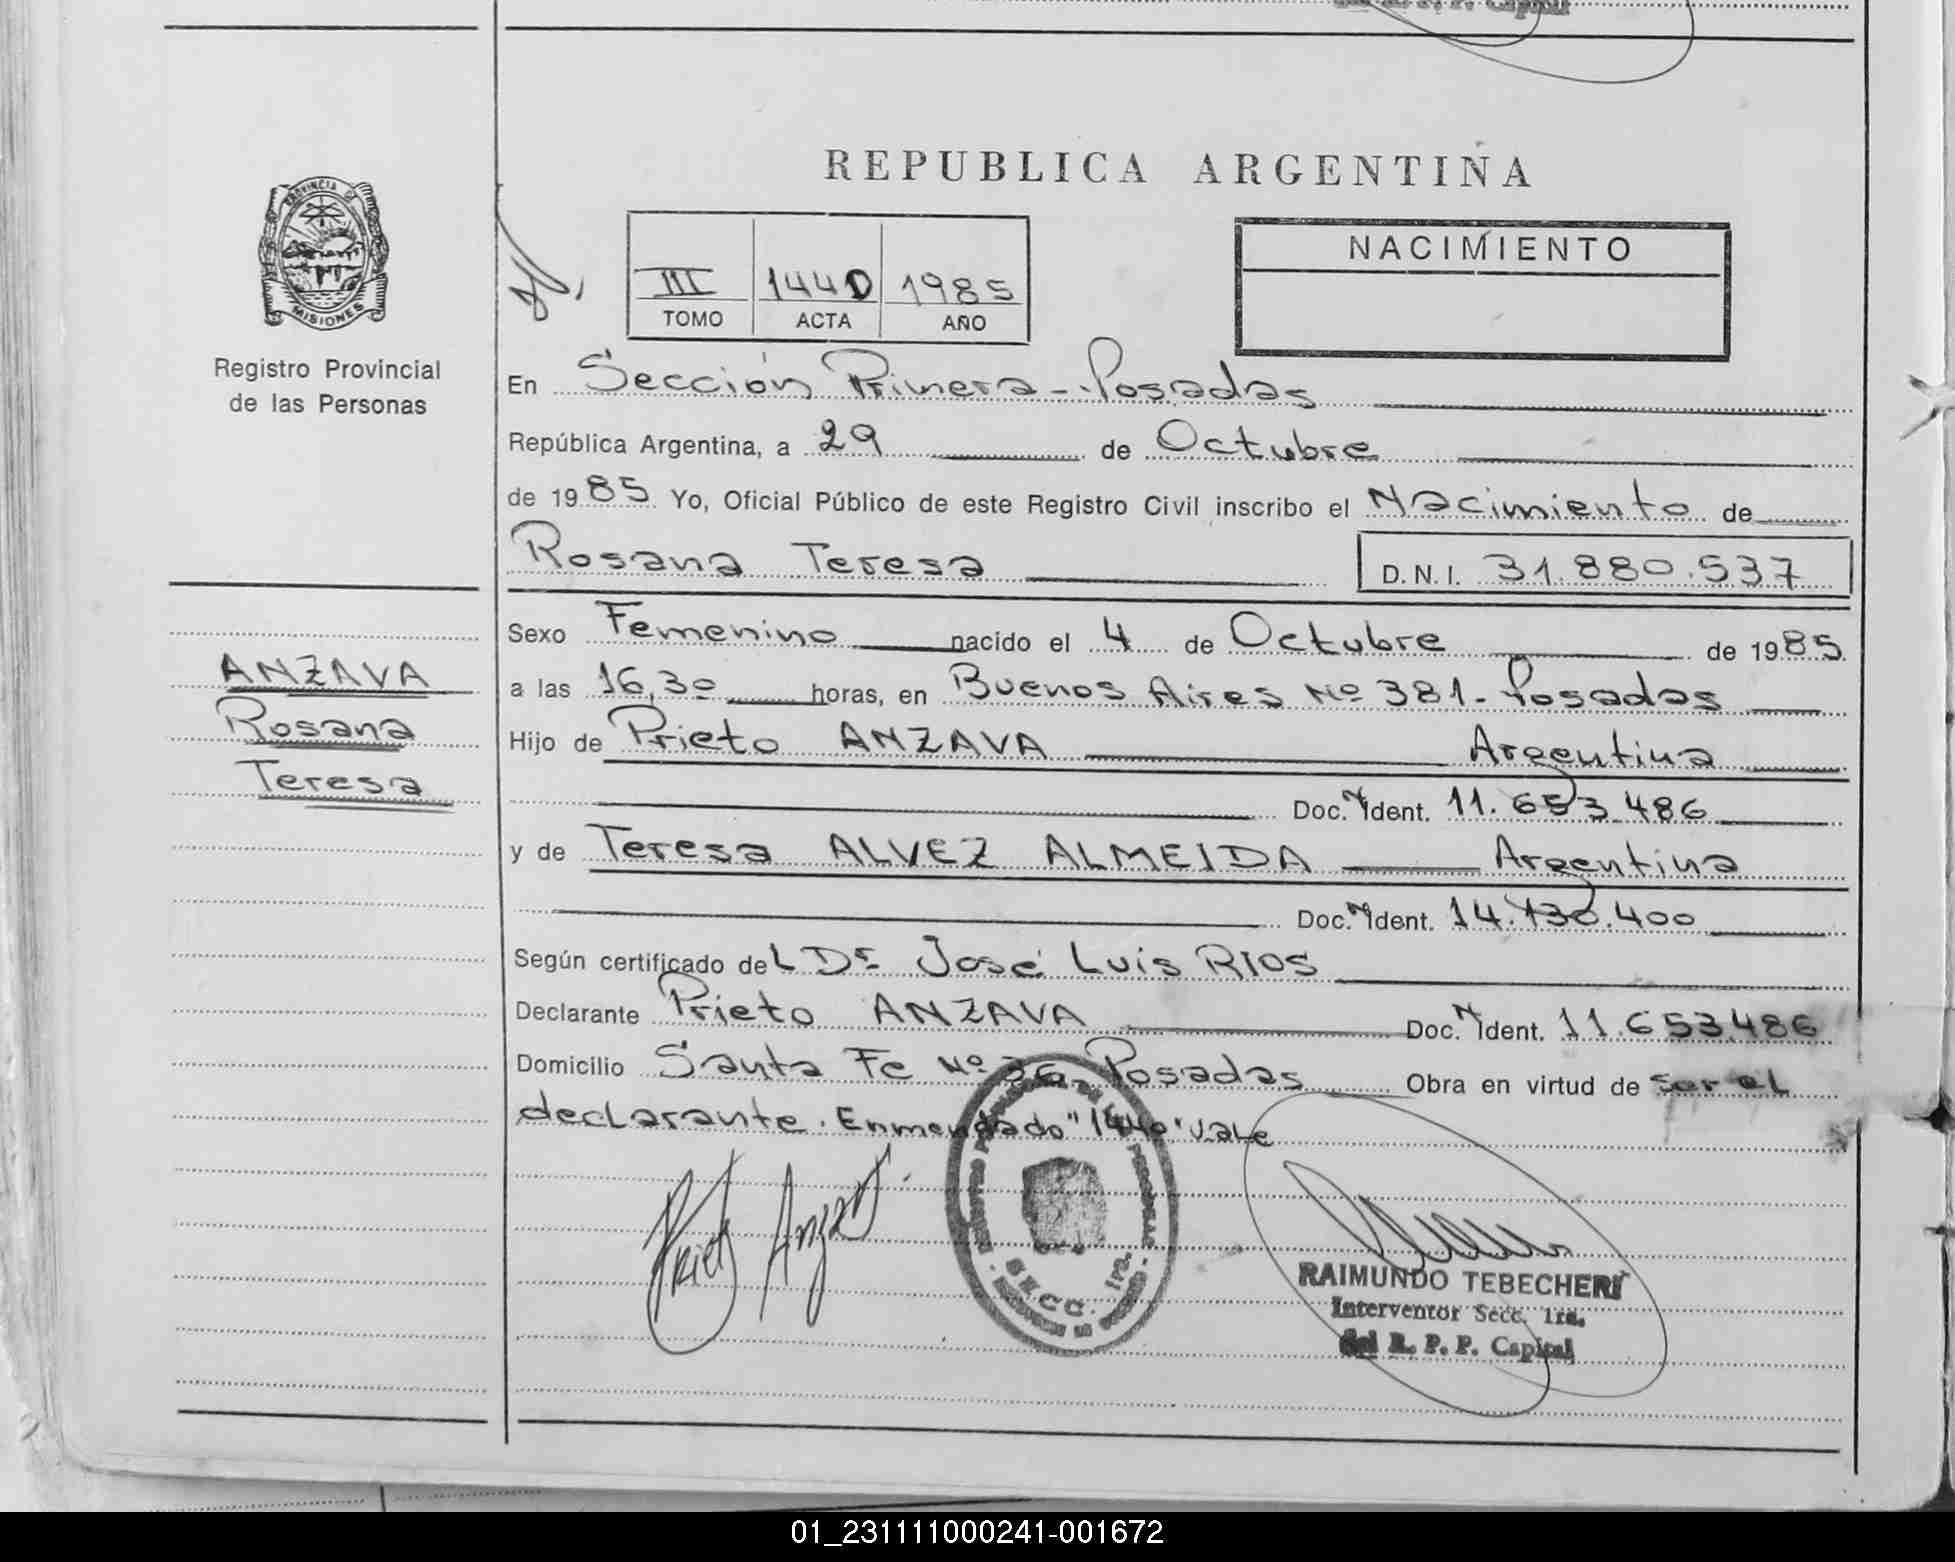 del R. P. P. Capital
REPUBLICA ARGENTINA
PROVINCIA DE
MISIONES
Registro Provincial
de las Personas
III 1440 1985
TOMO ACTA AÑO
NACIMIENTO
En Sección Primera - Posadas
República Argentina, a 29 de Octubre
de 1985 Yo, Oficial Público de este Registro Civil inscribo el Nacimiento de
Rosana Teresa D.N.I. 31.880.537
Sexo Femenino nacido el 4 de Octubre de 1985
ANZAVA
Rosana
Teresa
a las 16,30 horas, en Buenos Aires Nº 381 - Posadas
Hijo de Prieto ANZAVA Argentina
Doc. N Ident. 11.653.486
y de Teresa ALVEZ ALMEIDA Argentina
Doc. N Ident. 14.130.400
Según certificado deL Dr José Luis RIOS
Declarante Prieto ANZAVA Doc. N Ident. 11.653.486
Domicilio Santa Fe Nº 36 - Posadas Obra en virtud de ser el
declarante. Enmendado "1440" vale
Priet Anzav
SECC. 1ra.
RAIMUNDO TEBECHERI
Interventor Secc. 1ra.
del R. P. P. Capital
01_231111000241-001672